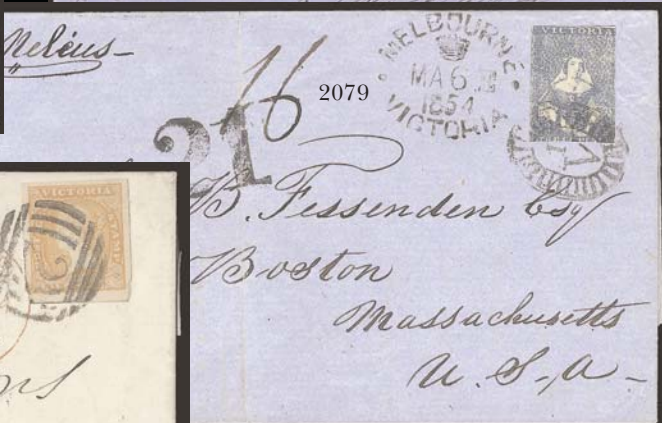 Meleus-
16
2079
21
MELBOURNE
MA 6
1854
VICTORIA
VICTORIA
V
B. Fessenden Esq
Boston
Massachusetts
U. S. A -
VICTORIA
STAMP